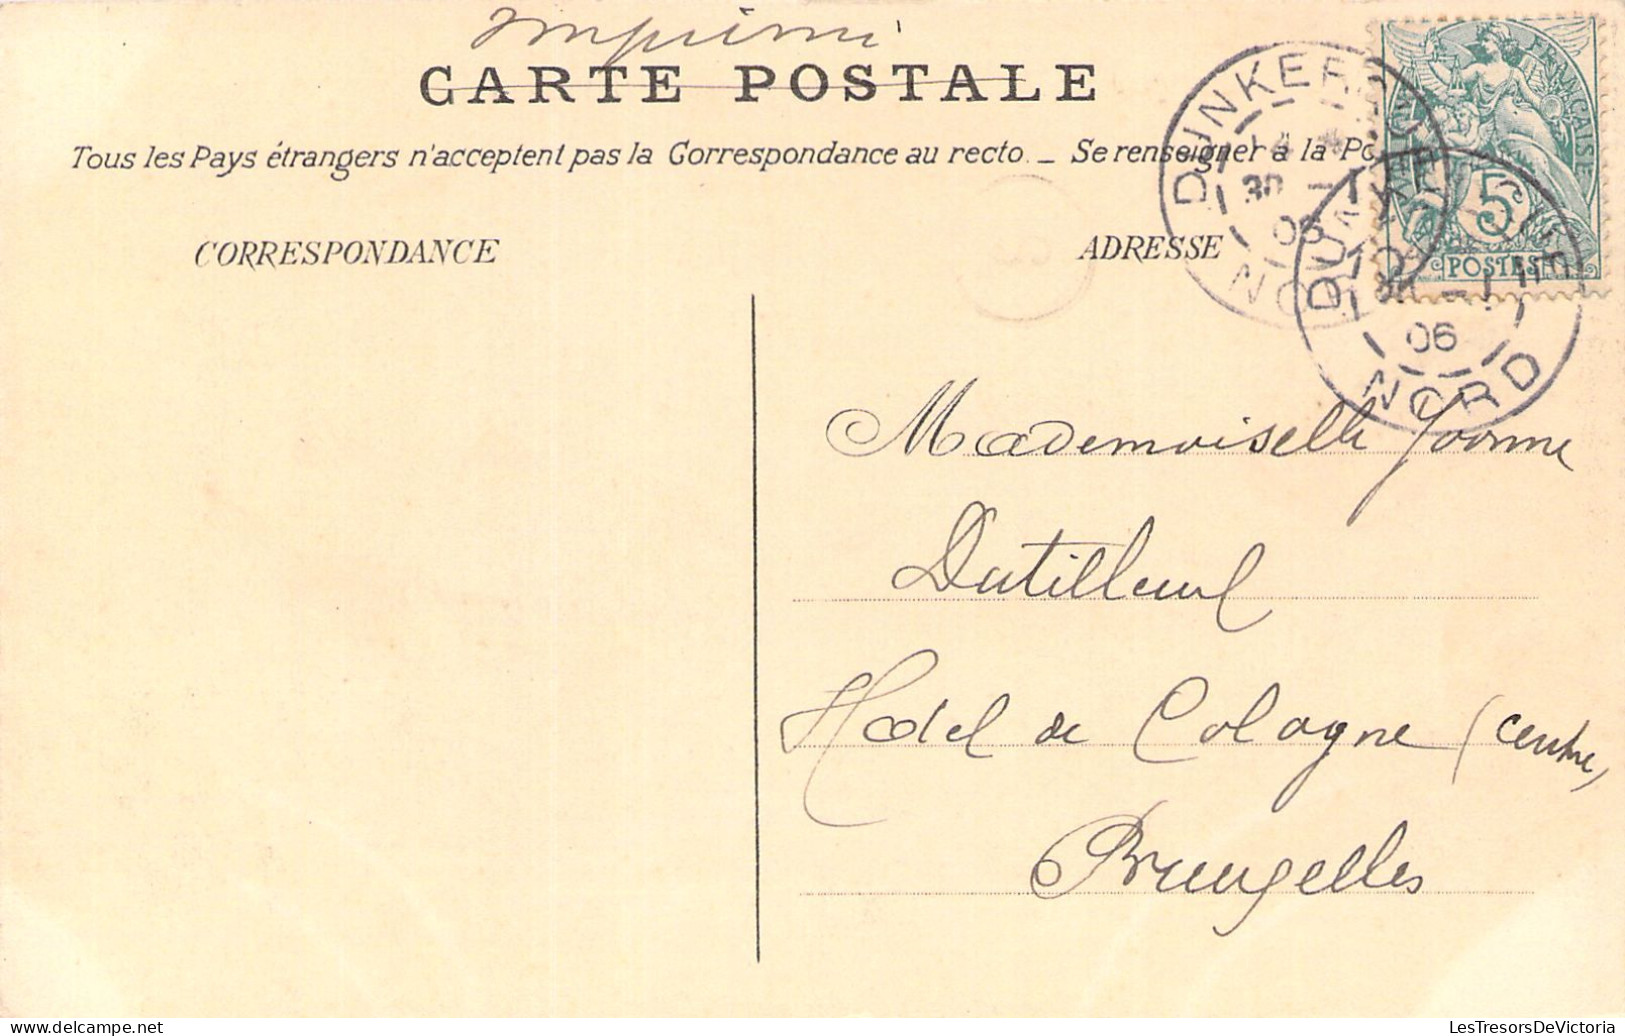 Imprimé
CARTE POSTALE
Tous les Pays étrangers n'acceptent pas la Correspondance au recto. _ Se renseigner à la Po
CORRESPONDANCE
ADRESSE
DUNKERQUE
30 - 1
06
NORD
DUNKERQUE
30 - 1
06
NORD
FRANÇAISE
5
POSTES
Mademoiselle Yvonne
Dutilleul
Hotel de Cologne (centre)
Bruxelles
LesTresorsDeVictoria